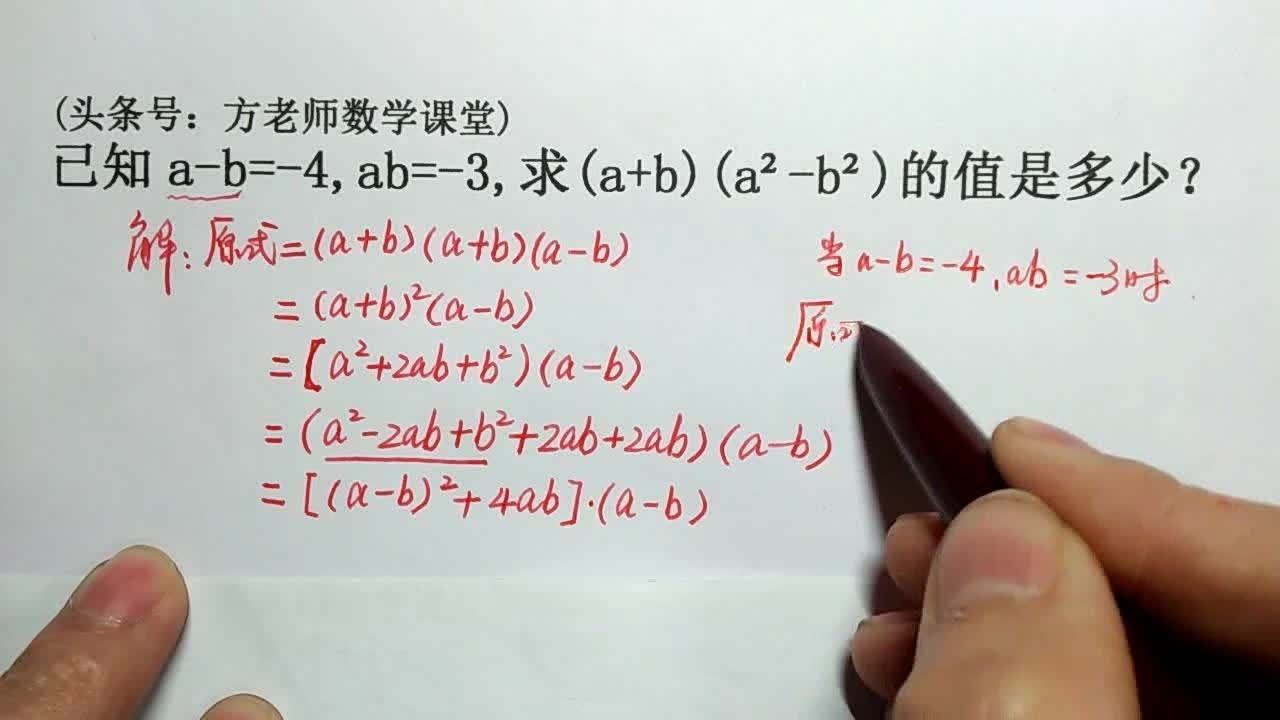 (头条号：方老师数学课堂)
已知 a-b=-4, ab=-3, 求(a+b)(a²-b²)的值是多少？
解：原式=(a+b)(a+b)(a-b)
=(a+b)²(a-b)
=[a²+2ab+b²)(a-b)
=(a²-2ab+b²+2ab+2ab)(a-b)
=[(a-b)²+4ab]·(a-b)
当a-b=-4,ab=-3时
原